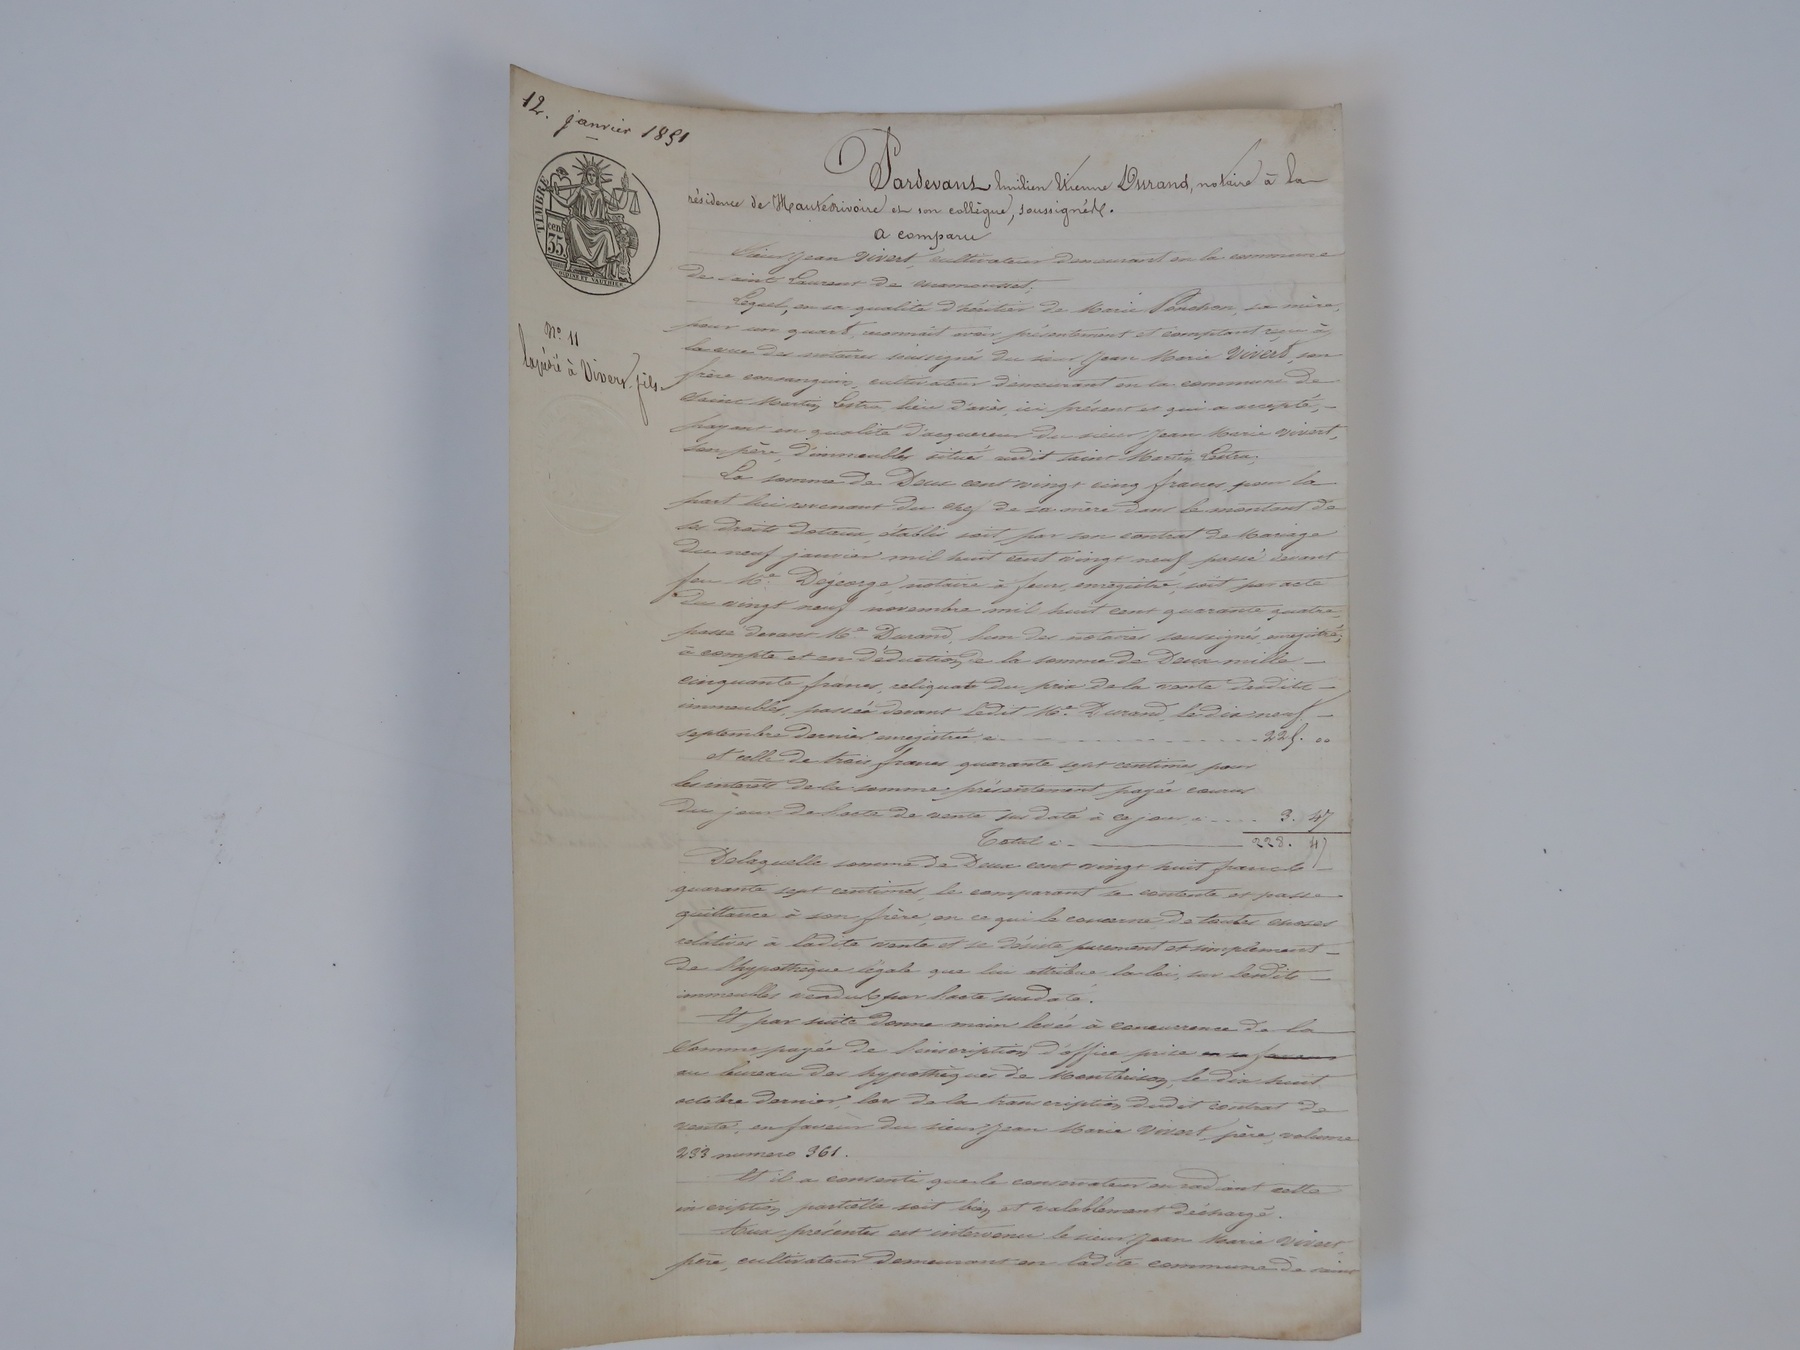 12. janvier 1851
TIMBRE
cent
35
Pardevant Emilien Etienne Durand, notaire à la
résidence de Hauterivoire et son collègue, soussignés.
a comparu
Sieur Jean Vivert, cultivateur demeurant en la commune
de Saint Laurent de Chamousset;
Lequel, en sa qualité d'héritier de Marie Ponchon, sa mère,
pour un quart, reconnait avoir présentement et comptant reçu à
la vue des notaires soussignés du sieur Jean Marie Vivert, son
frère consanguin, cultivateur demeurant en la commune de
Saint Martin Lestra, lieu d', ici présent et qui a accepté,
payant en qualité d'acquereur du sieur Jean Marie Vivert,
son père, d'immeubles situés audit Saint Martin Lestra;
N° 11
Expédié à Vivert fils
La somme de Deux cent vingt cinq francs pour la
part lui revenant du chef de sa mère dans le montant de
ses droits dotaux, établis soit par son contrat de Mariage
du neuf janvier mil huit cent vingt neuf passé devant
feu Me Degeorge, notaire à feurs, enregistré, soit par acte
du vingt neuf novembre mil huit cent quarante quatre,
passé devant Me Durand, l'un des notaires soussignés, enregistré,
à compte et en déduction de la somme de Deux mille
cinquante francs, reliquat du prix de la vente desdits
immeubles, passée devant ledit Me Durand, le dix neuf
septembre dernier enregistrée, ci 225. 00
et celle de trois francs quarante sept centimes pour
les intérêts de la somme présentement payée courus
du jour de l'acte de vente susdaté à ce jour, ci 3. 47
Total ci 228. 47
De laquelle somme de Deux cent vingt huit francs
quarante sept centimes, le comparant se contente et passe
quittance à son frère, en ce qui le concerne, de toutes choses
relatives à ladite vente et se désiste purement et simplement
de l'hypothèque légale que lui attribue la loi, sur lesdits
immeubles vendus par l'acte susdaté.
Et par suite donne main levée à concurrence de la
somme payée de l'inscription d'office prise en sa faveur
au bureau des hypothèques de Montbrison, le dix huit
octobre dernier, lors de la transcription dudit contrat de
vente, en faveur du sieur Jean Marie Vivert, père, volume
233 numero 361.
Et il a consenti que le conservateur en radiant cette
inscription partielle soit bien et valablement déchargé.
Aux présentes est intervenu le sieur Jean Marie Vivert
père, cultivateur demeurant en ladite commune de Saint